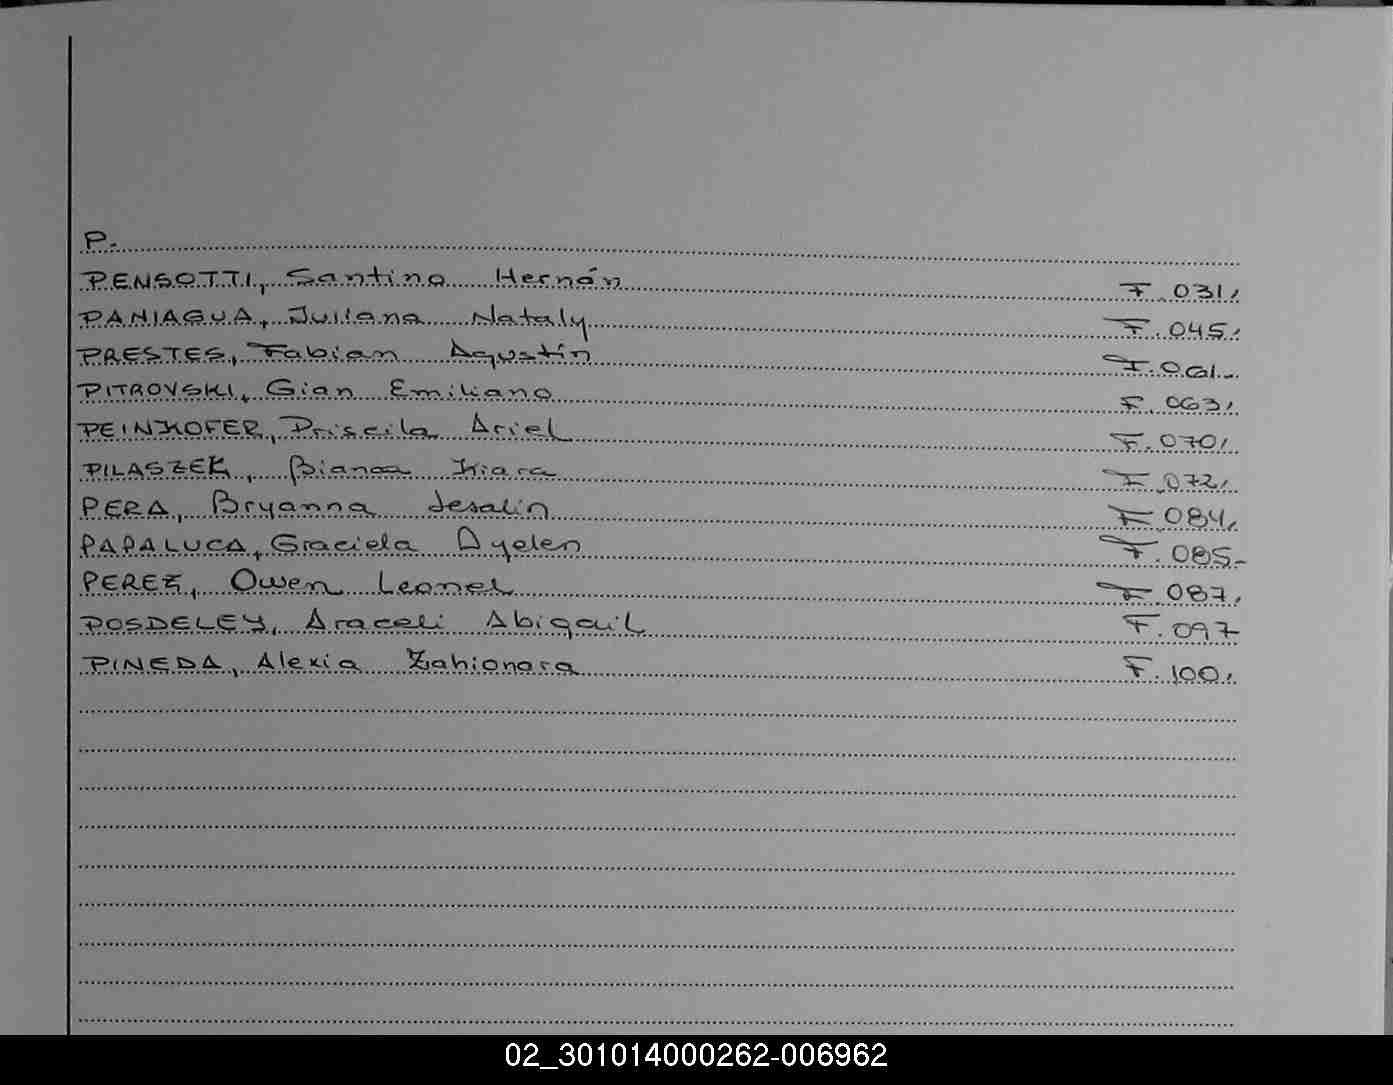 P.
PENSOTTI, Santino Hernán F. 031,
PANIAGUA, Juliana Nataly F. 045,
PRESTES, Fabian Agustín F. 061-
PITROVSKI, Gian Emiliano F. 063,
PEINKOFER, Priscila Ariel F. 070,
PILASZEK, Bianca Kiara F. 072,
PERA, Bryanna Jesalin F. 084,
PAPALUCA, Graciela Ayelen F. 085-
PEREZ, Owen Leonel F. 087,
POSDELEY, Araceli Abigail F. 097
PINEDA, Alexia Zahionara F. 100,
02_301014000262-006962